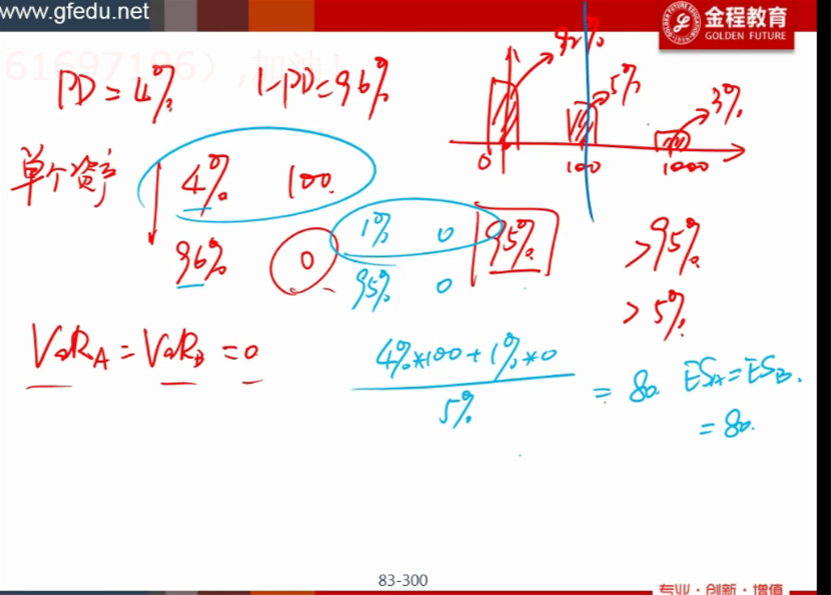 www.gfedu.net
金程教育
GOLDEN FUTURE
61697196），加油！
PD=4% 1-PD=96%
92%
5%
3%
0 100 1000
单个资产
4% 100
96% 0
1% 0
95% 0
95%
>95%
>5%
VaR_A=VaR_B=0
4%*100+1%*0
5%
=80. ES_A=ES_B.
=80.
83-300
专业·创新·增值